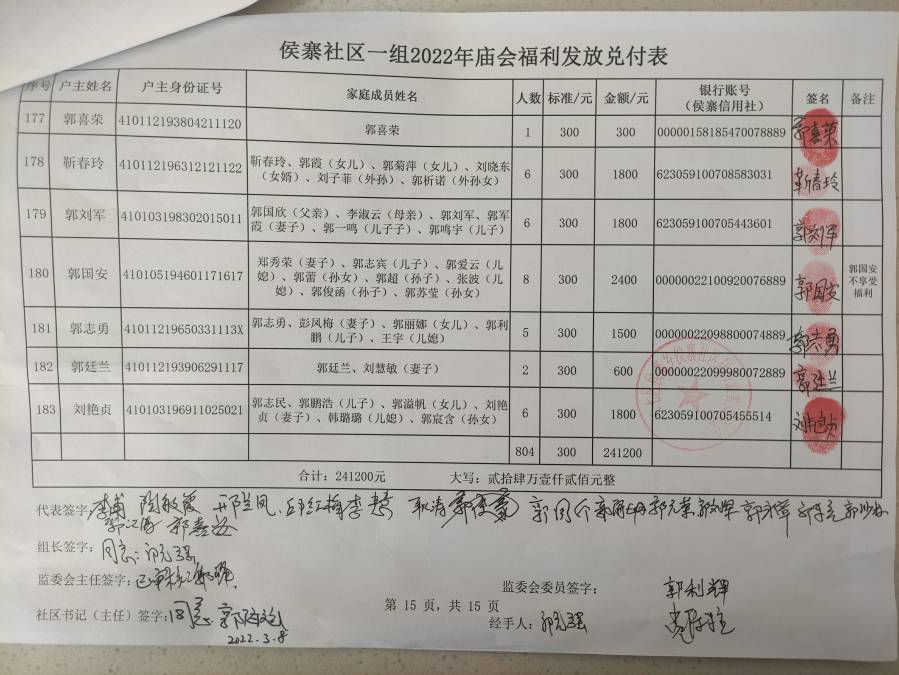 侯寨社区一组2022年庙会福利发放兑付表
序号 户主姓名 户主身份证号 家庭成员姓名 人数 标准/元 金额/元 银行账号（侯寨信用社） 签名 备注
177 郭喜荣 410112193804211120 郭喜荣 1 300 300 00000158185470078889 郭喜荣
178 靳春玲 410112196312121122 靳春玲、郭霞（女儿）、郭菊萍（女儿）、刘晓东（女婿）、刘子菲（外孙）、郭析诺（外孙女） 6 300 1800 623059100708583031 靳春玲
179 郭刘军 410103198302015011 郭国欣（父亲）、李淑云（母亲）、郭刘军、郭军霞（妻子）、郭一鸣（儿子子）、郭鸣宇（儿子） 6 300 1800 623059100705443601 郭刘军
180 郭国安 410105194601171617 郑秀荣（妻子）、郭志宾（儿子）、郭爱云（儿媳）、郭蕾（孙女）、郭超（孙子）、张波（儿媳）、郭俊函（孙子）、郭苏莹（孙女） 8 300 2400 00000022100920076889 郭国安 郭国安不享受福利
181 郭志勇 41011219650331113X 郭志勇、彭凤梅（妻子）、郭丽娜（女儿）、郭利鹏（儿子）、王宇（儿媳） 5 300 1500 00000022098800074889 郭志勇
182 郭廷兰 410112193906291117 郭廷兰、刘慧敏（妻子） 2 300 600 00000022099980072889 郭廷兰
183 刘艳贞 410103196911025021 郭志民、郭鹏浩（儿子）、郭溢帆（女儿）、刘艳贞（妻子）、韩璐璐（儿媳）、郭宸含（孙女） 6 300 1800 623059100705455514 刘艳贞
804 300 241200
合计：241200元 大写：贰拾肆万壹仟贰佰元整
代表签字：
组长签字：同意
监委会主任签字： 监委会委员签字： 郭利辉
第 15 页，共 15 页
社区书记（主任）签字：同意 经手人：
2022.3.8